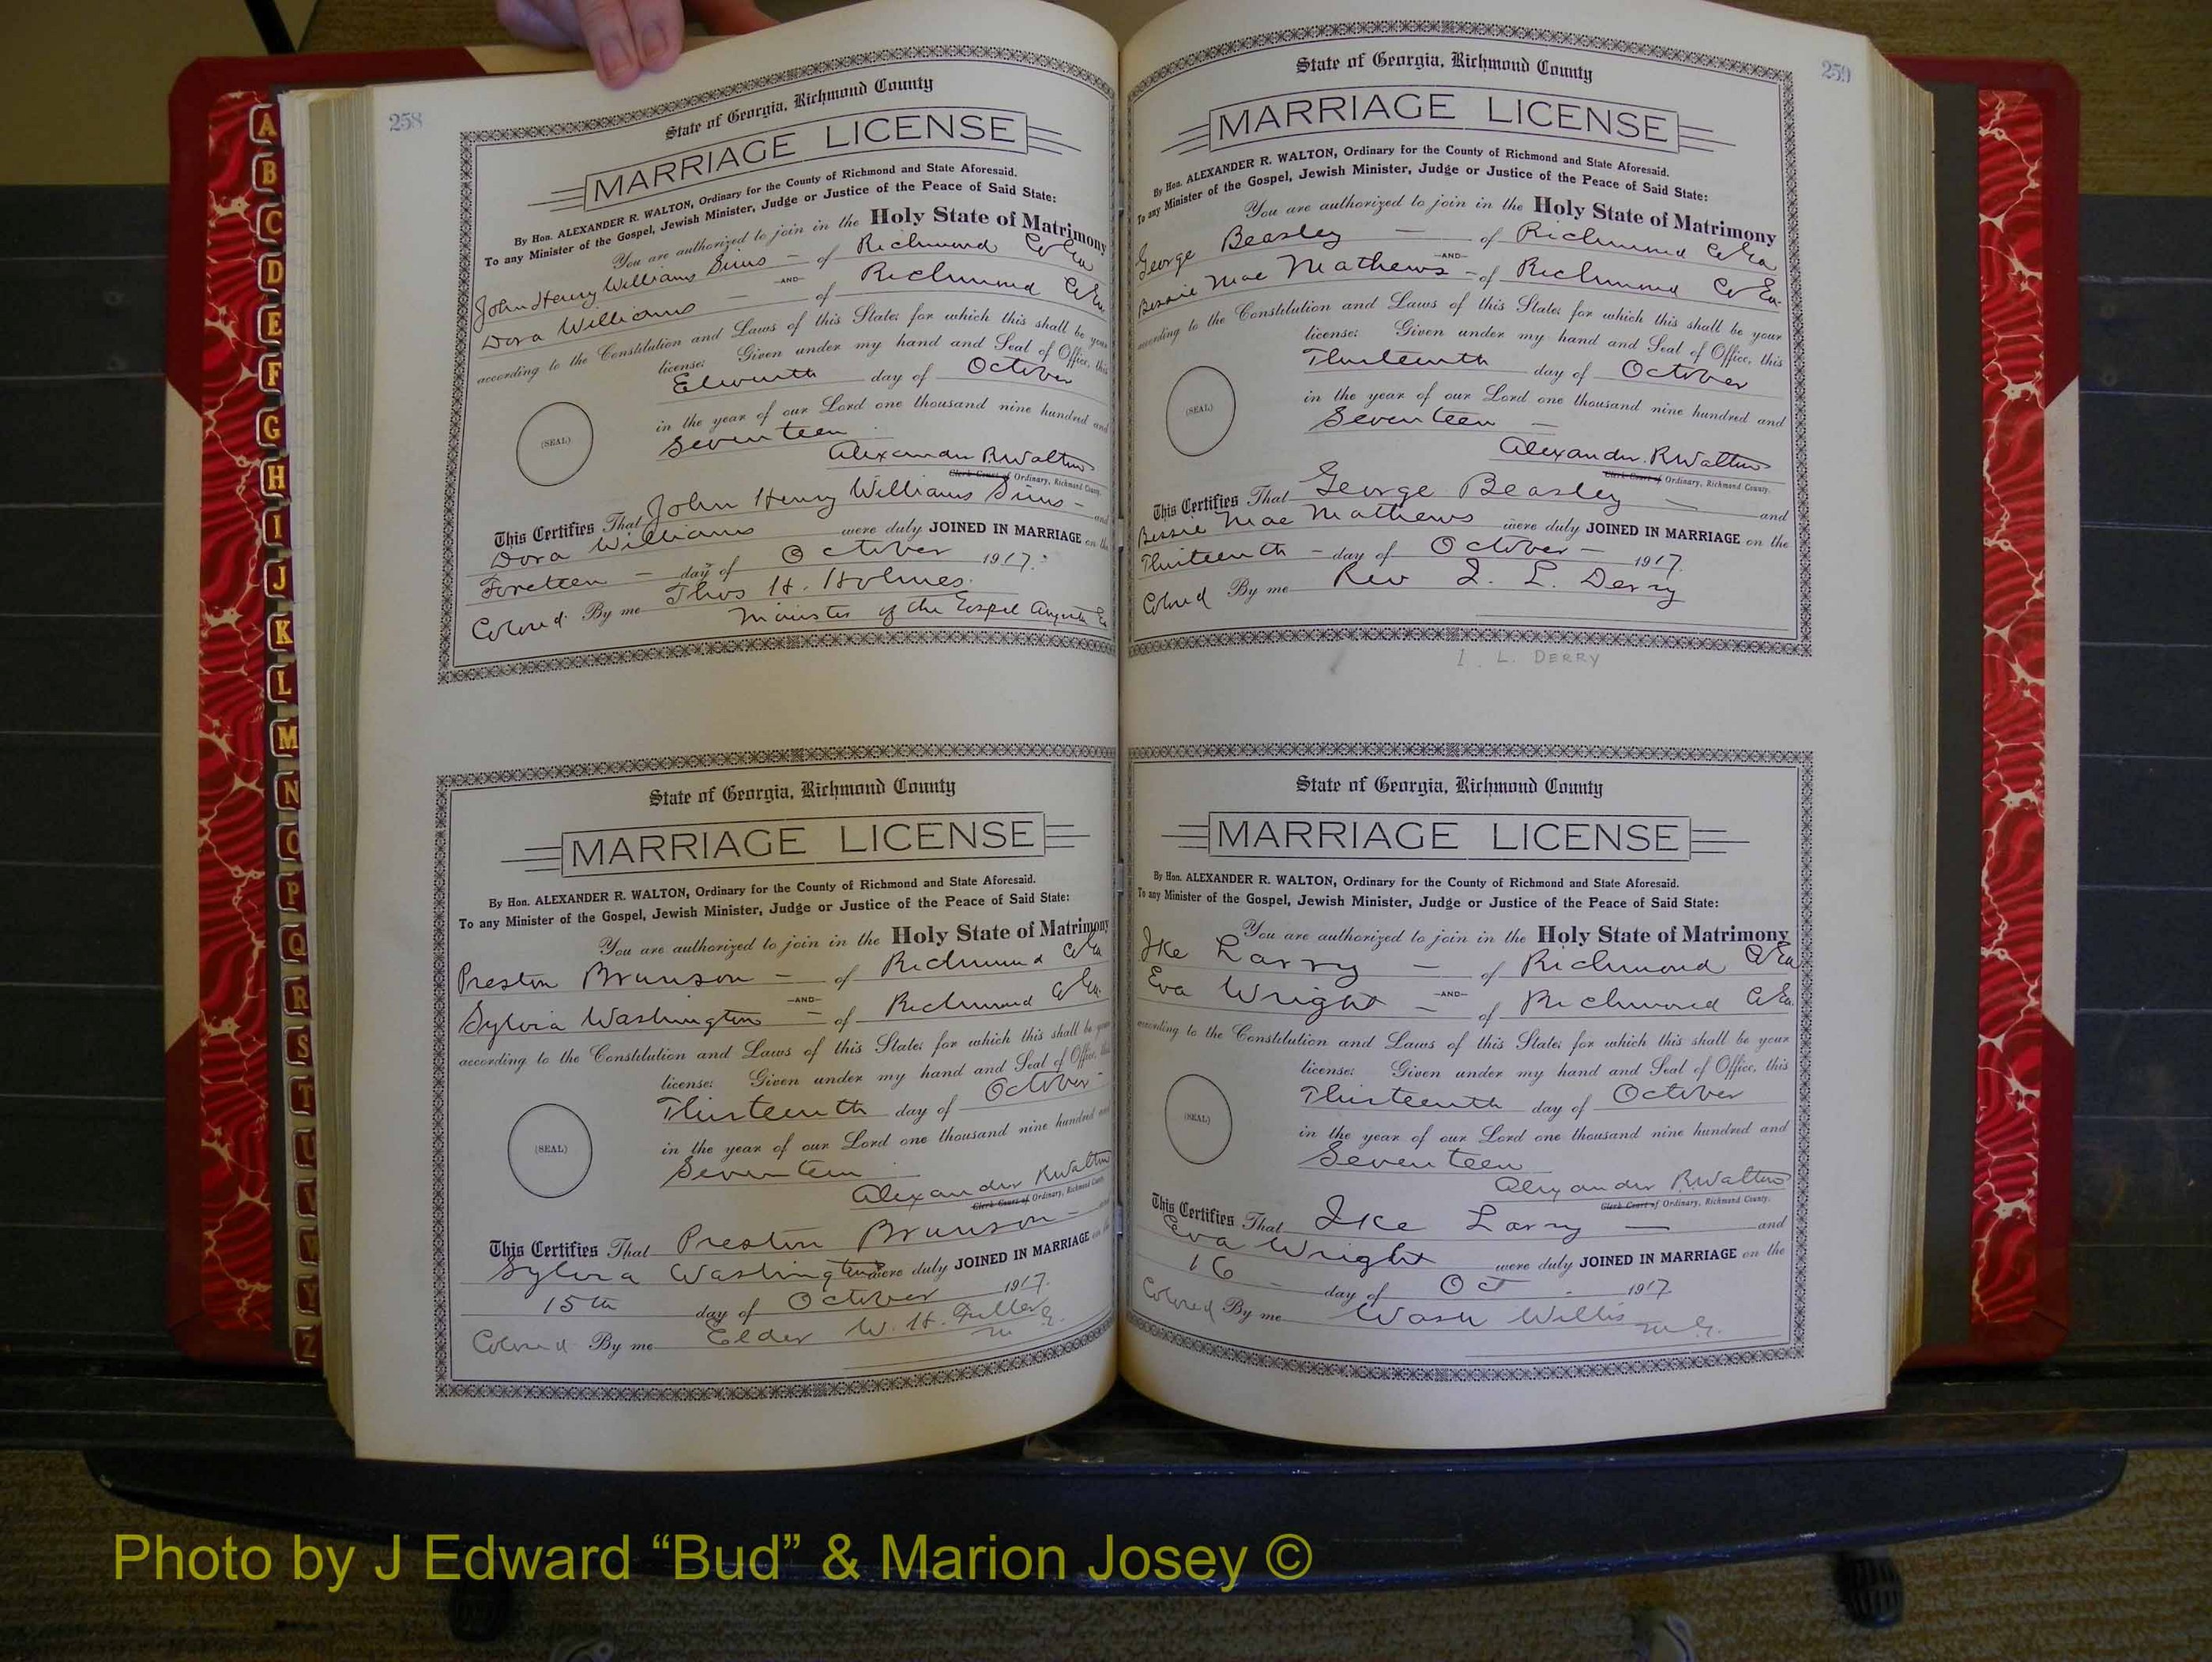 A
B
C
D
E
F
G
H
I
J
K
L
M
N
O
P
Q
R
S
T
U
V
W
Y
Z
258
State of Georgia, Richmond County
MARRIAGE LICENSE
By Hon. ALEXANDER R. WALTON, Ordinary for the County of Richmond and State Aforesaid.
To any Minister of the Gospel, Jewish Minister, Judge or Justice of the Peace of Said State:
You are authorized to join in the Holy State of Matrimony
John Henry Williams Sims — of Richmond Co Ga
—AND—
Dora Williams — of Richmond Co Ga
according to the Constitution and Laws of this State; for which this shall be your
license: Given under my hand and Seal of Office, this
Eleventh day of October
in the year of our Lord one thousand nine hundred and
(SEAL)
Seventeen
Alexander R Walton
Clerk Court of Ordinary, Richmond County.
This Certifies That John Henry Williams Sims — and
Dora Williams were duly JOINED IN MARRIAGE on the
Foreteen — day of October 1917.
Colored By me Thos H. Holmes.
Minister of the Gospel Augusta Ga
State of Georgia, Richmond County
MARRIAGE LICENSE
By Hon. ALEXANDER R. WALTON, Ordinary for the County of Richmond and State Aforesaid.
To any Minister of the Gospel, Jewish Minister, Judge or Justice of the Peace of Said State:
You are authorized to join in the Holy State of Matrimony
Preston Brunson — of Richmond Co Ga
—AND—
Sylvia Washington — of Richmond Co Ga.
according to the Constitution and Laws of this State; for which this shall be your
license: Given under my hand and Seal of Office, this
Thirteenth day of October
in the year of our Lord one thousand nine hundred and
(SEAL)
Seventeen
Alexander R Walton
Clerk Court of Ordinary, Richmond County.
This Certifies That Preston Brunson —
Sylvia Washington were duly JOINED IN MARRIAGE
15th day of October 1917.
Colored By me Elder W. H. Fuller
M G.
259
State of Georgia, Richmond County
MARRIAGE LICENSE
By Hon. ALEXANDER R. WALTON, Ordinary for the County of Richmond and State Aforesaid.
To any Minister of the Gospel, Jewish Minister, Judge or Justice of the Peace of Said State:
You are authorized to join in the Holy State of Matrimony
George Beasley — of Richmond Co Ga
—AND—
Bessie Mae Mathews — of Richmond Co Ga.
according to the Constitution and Laws of this State; for which this shall be your
license: Given under my hand and Seal of Office, this
Thirteenth day of October
in the year of our Lord one thousand nine hundred and
(SEAL)
Seventeen —
Alexander R Walton
Clerk Court of Ordinary, Richmond County.
This Certifies That George Beasley — and
Bessie Mae Mathews were duly JOINED IN MARRIAGE on the
Thirteenth — day of October — 1917.
Colored By me Rev I. L. Derry
I. L. DERRY
State of Georgia, Richmond County
MARRIAGE LICENSE
By Hon. ALEXANDER R. WALTON, Ordinary for the County of Richmond and State Aforesaid.
To any Minister of the Gospel, Jewish Minister, Judge or Justice of the Peace of Said State:
You are authorized to join in the Holy State of Matrimony
Ike Larry — of Richmond Co Ga
—AND—
Eva Wright — of Richmond Co Ga.
according to the Constitution and Laws of this State; for which this shall be your
license: Given under my hand and Seal of Office, this
Thirteenth day of October
in the year of our Lord one thousand nine hundred and
(SEAL)
Seventeen
Alexander R Walton
Clerk Court of Ordinary, Richmond County.
This Certifies That Ike Larry — and
Eva Wright were duly JOINED IN MARRIAGE on the
16 — day of Oct. 1917
Colored By me Wash Willis M. G.
Photo by J Edward “Bud” & Marion Josey ©